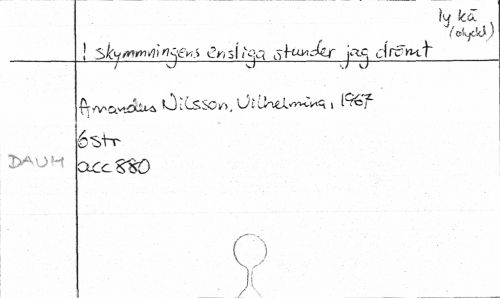 ly kä
(olyckl)
! skymmningens ensliga stunder jag drömt
Amandus Nilsson, Vilhelmina, 1967
6str
DAUM acc 880